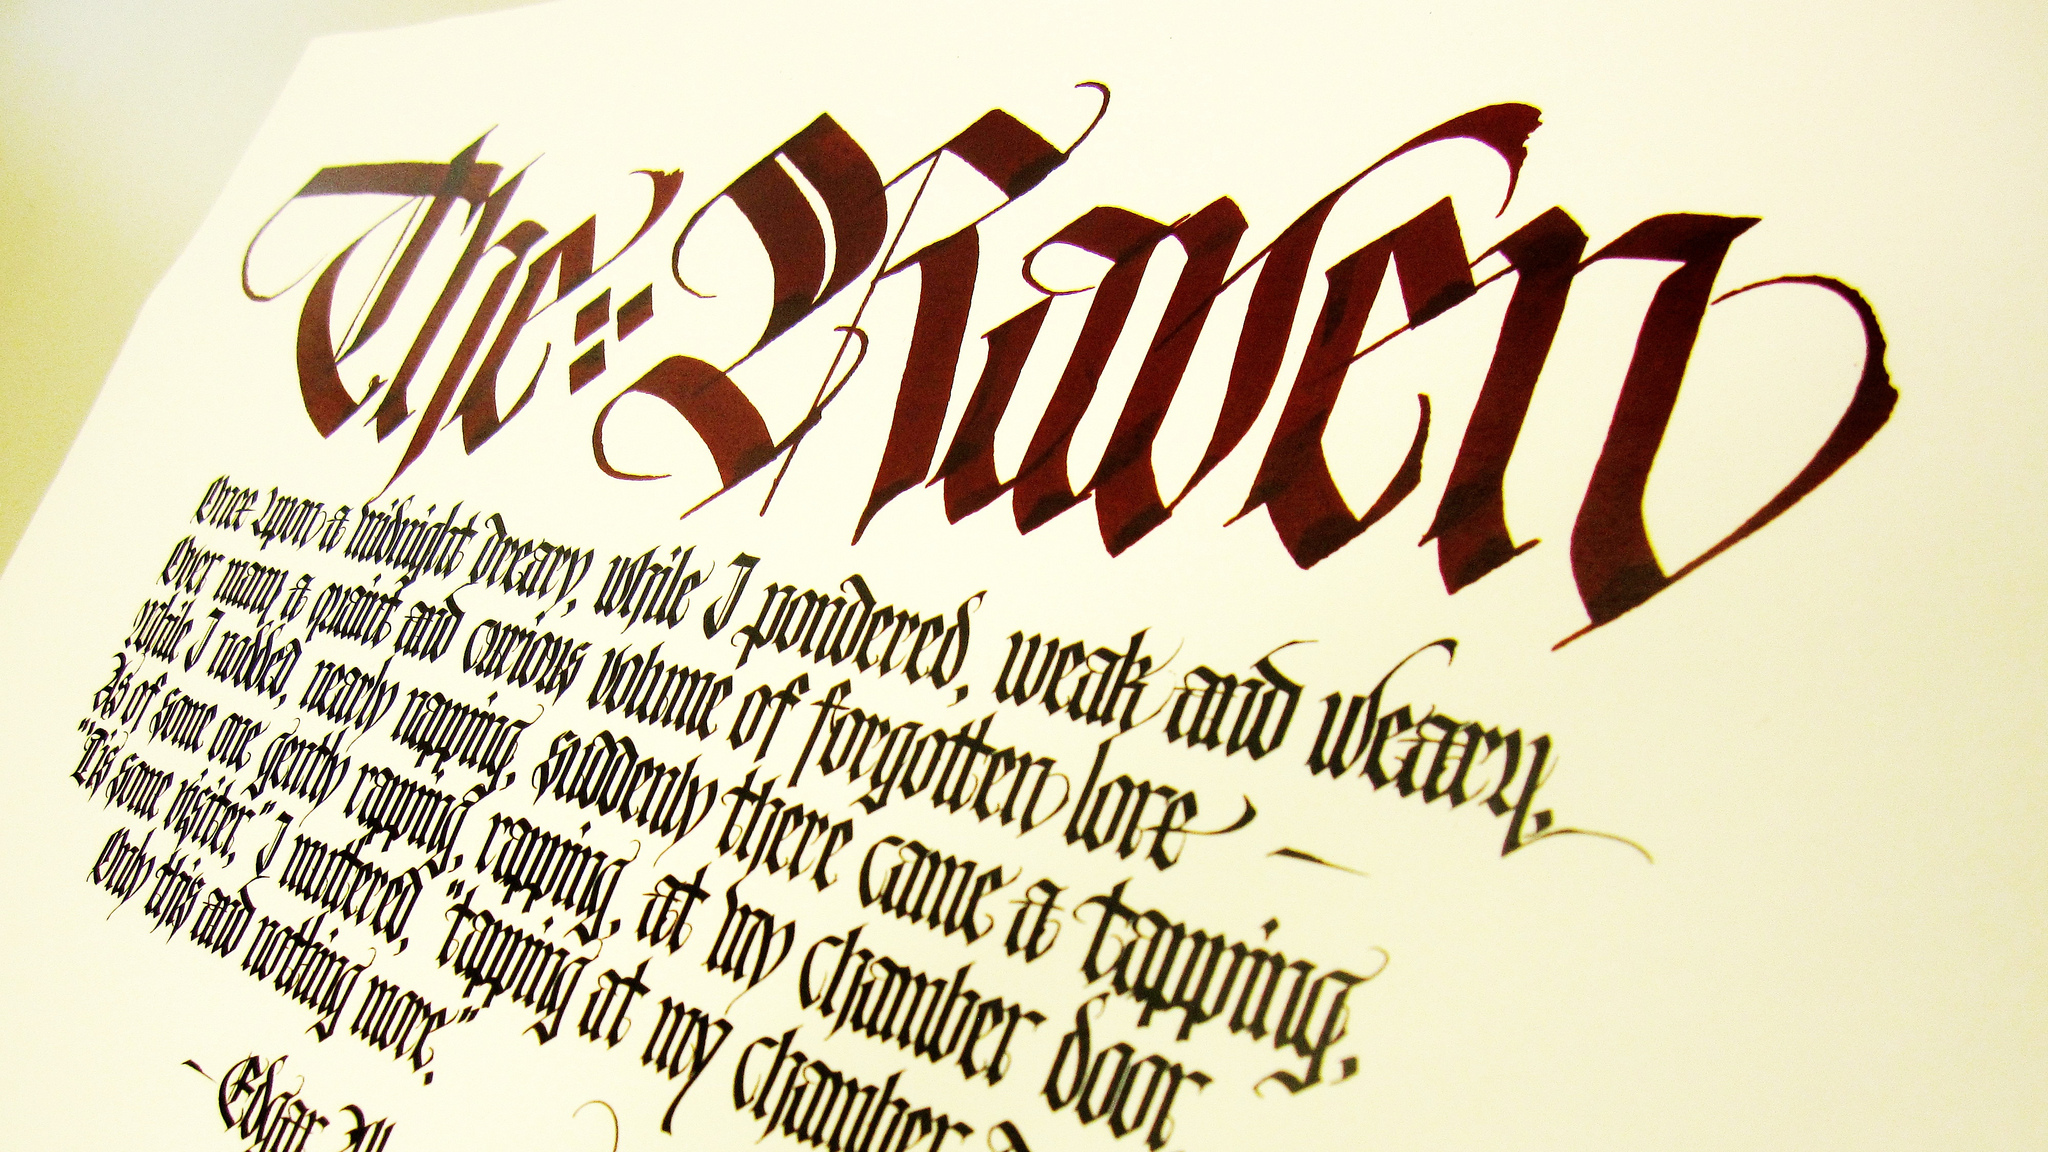 The Raven
Once upon a midnight dreary, while I pondered, weak and weary,
Over many a quaint and curious volume of forgotten lore —
While I nodded, nearly napping, suddenly there came a tapping,
As of some one gently rapping, rapping, at my chamber door
"'Tis some visiter," I muttered, "tapping at my chamber
Only this and nothing more."
— Edgar All